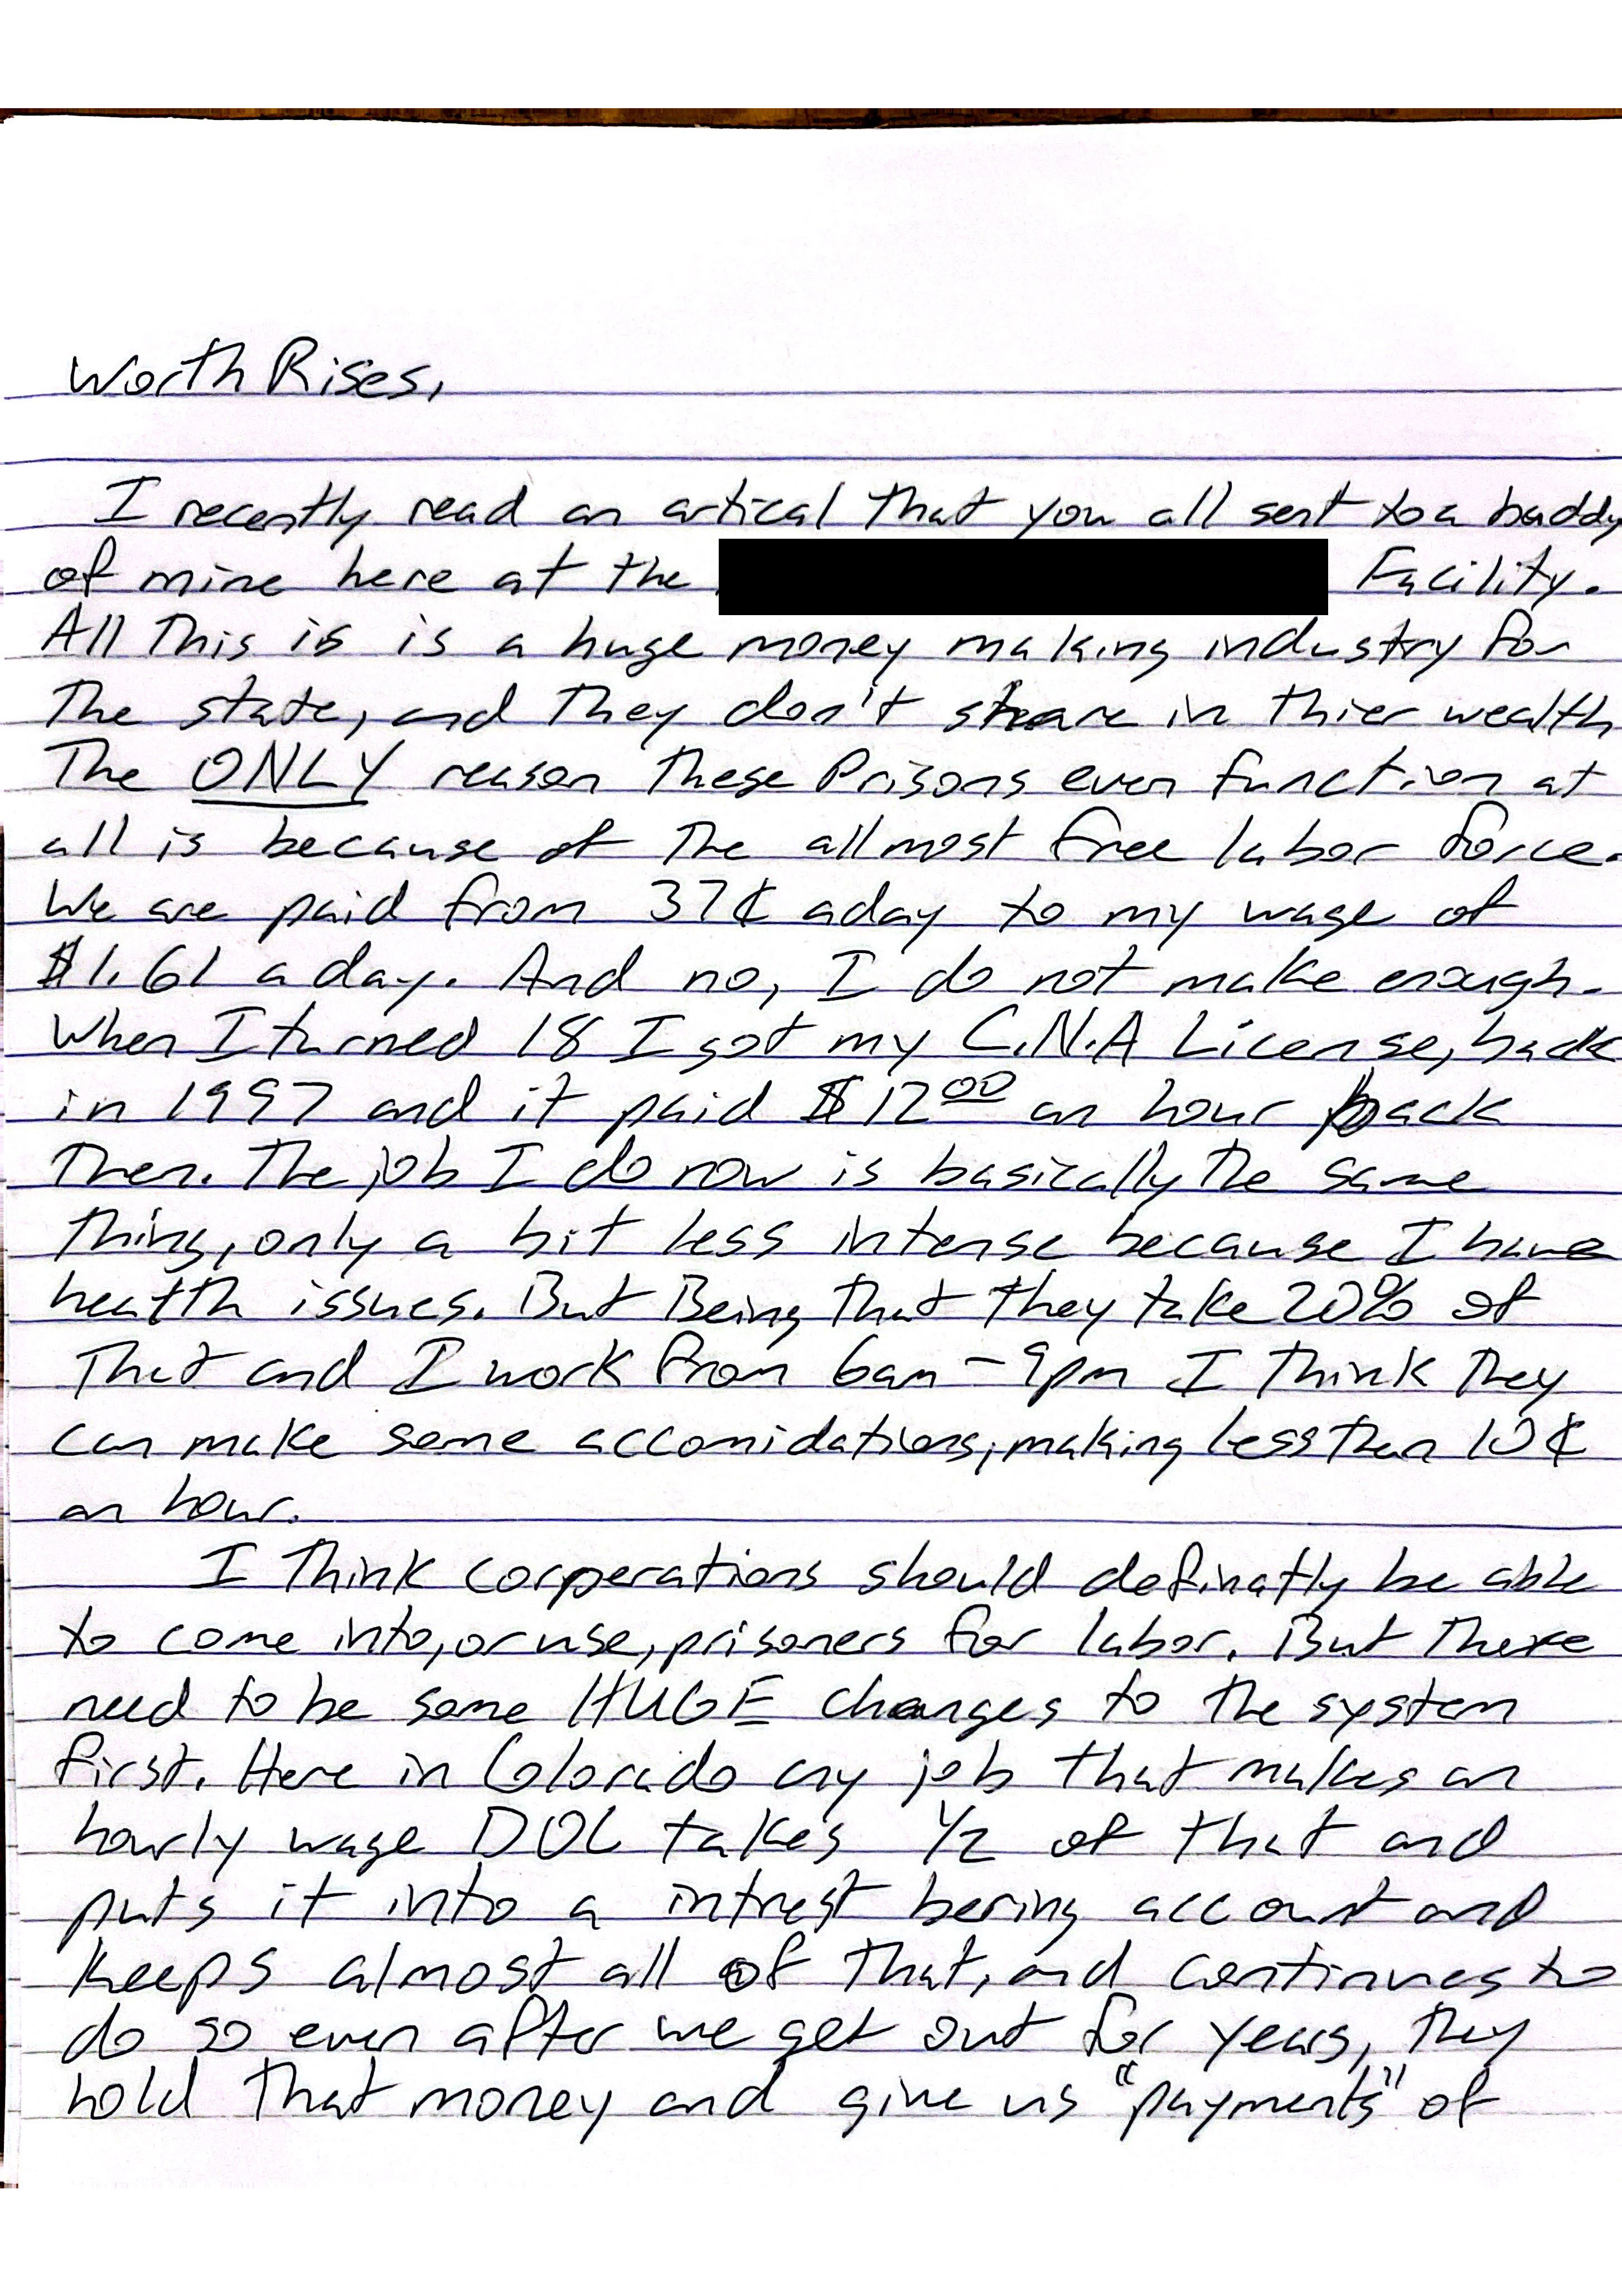 Worth Rises,
I recently read an artical that you all sent to a buddy
of mine here at the Facility.
All this is is a huge money making industry for
the state, and they don't share in thier wealth
The ONLY reason these Prisons even function at
all is because of the allmost free labor force.
We are paid from 37¢ a day to my wage of
$1.61 a day. And no, I do not make enough.
When I turned 18 I got my C.N.A License, back
in 1997 and it paid $12.00 an hour back
then. The job I do now is basically the same
thing, only a bit less intense because I have
health issues. But Being that they take 20% of
that and I work from 6am - 9pm I think they
can make some accomidations, making less than 10¢
an hour.
I think corperations should definatly be able
to come into, or use, prisoners for labor. But there
need to be some HUGE changes to the system
first. Here in Colorado any job that makes an
hourly wage DOC takes 1/2 of that and
puts it into a intrest bering account and
keeps almost all of that, and continues to
do so even after we get out for years, they
hold that money and give us "payments" of